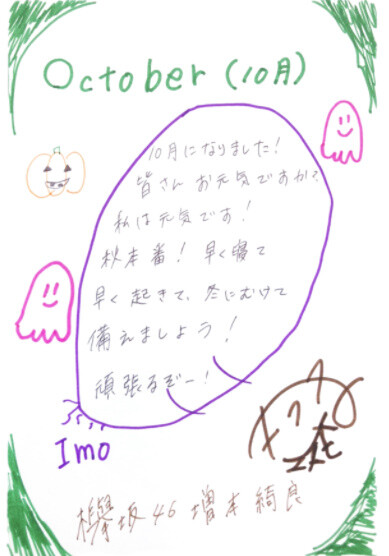 October (10月)
10月になりました!
皆さんお元気ですか?
私は元気です!
秋本番!早く寝て
早く起きて、冬にむけて
備えましょう!
頑張るぞー!
Imo
欅坂46 増本綺良